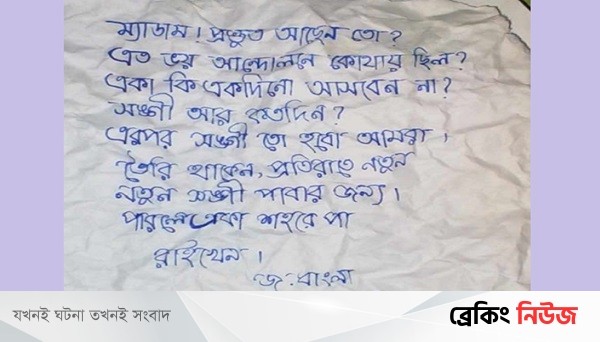 ম্যাডাম! প্রস্তুত আছেন তো?
এত ভয় আন্দোলনে কোথায় ছিল?
একা কি একদিনো আসবেন না?
সঙ্গী আর কতদিন?
এরপর সঙ্গী তো হবো আমরা।
তৈরি থাকেন, প্রতিরাতে নতুন
নতুন সঙ্গী পাবার জন্য।
পারলে একা শহরে পা
রাইখেন।
জ:বাংলা
যখনই ঘটনা তখনই সংবাদ
ব্রেকিং নিউজ